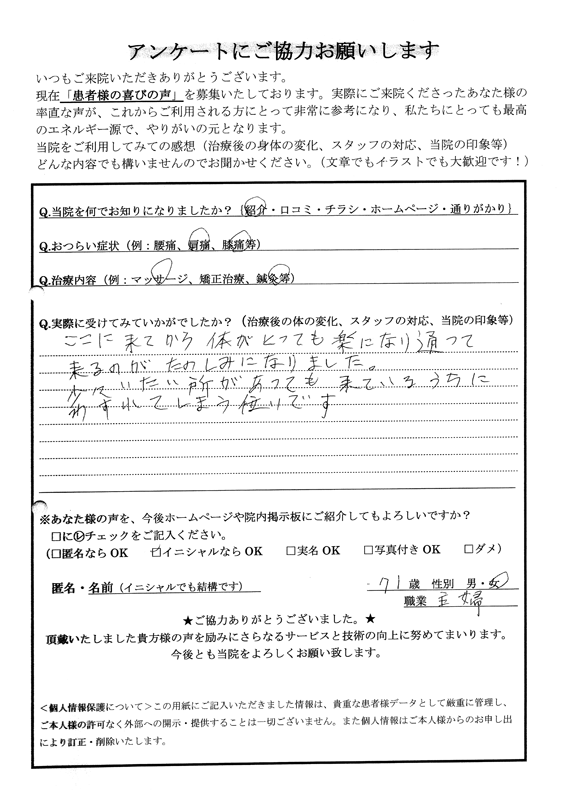 アンケートにご協力お願いします
いつもご来院いただきありがとうございます。
現在「患者様の喜びの声」を募集いたしております。実際にご来院くださったあなた様の
率直な声が、これからご利用される方にとって非常に参考になり、私たちにとっても最高
のエネルギー源で、やりがいの元となります。
当院をご利用してみての感想（治療後の身体の変化、スタッフの対応、当院の印象等）
どんな内容でも構いませんのでお聞かせください。（文章でもイラストでも大歓迎です！）
Q.当院を何でお知りになりましたか？｛紹介・口コミ・チラシ・ホームページ・通りがかり｝
Q.おつらい症状（例：腰痛、肩痛、膝痛等）
Q.治療内容（例：マッサージ、矯正治療、鍼灸等）
Q.実際に受けてみていかがでしたか？（治療後の体の変化、スタッフの対応、当院の印象等）
ここに来てから体がとっても楽になり通って
来るのがたのしみになりました。
少々いたい所があっても来ているうちに
わすれてしまう位いです
※あなた様の声を、今後ホームページや院内掲示板にご紹介してもよろしいですか？
□に☑チェックをご記入ください。
（□匿名ならOK ☑イニシャルならOK □実名OK □写真付きOK □ダメ）
匿名・名前（イニシャルでも結構です） 71歳 性別 男・女
職業 主婦
★ご協力ありがとうございました。★
頂戴いたしました貴方様の声を励みにさらなるサービスと技術の向上に努めてまいります。
今後とも当院をよろしくお願い致します。
＜個人情報保護について＞この用紙にご記入いただきました情報は、貴重な患者様データとして厳重に管理し、
ご本人様の許可なく外部への開示・提供することは一切ございません。また個人情報はご本人様からのお申し出
により訂正・削除いたします。